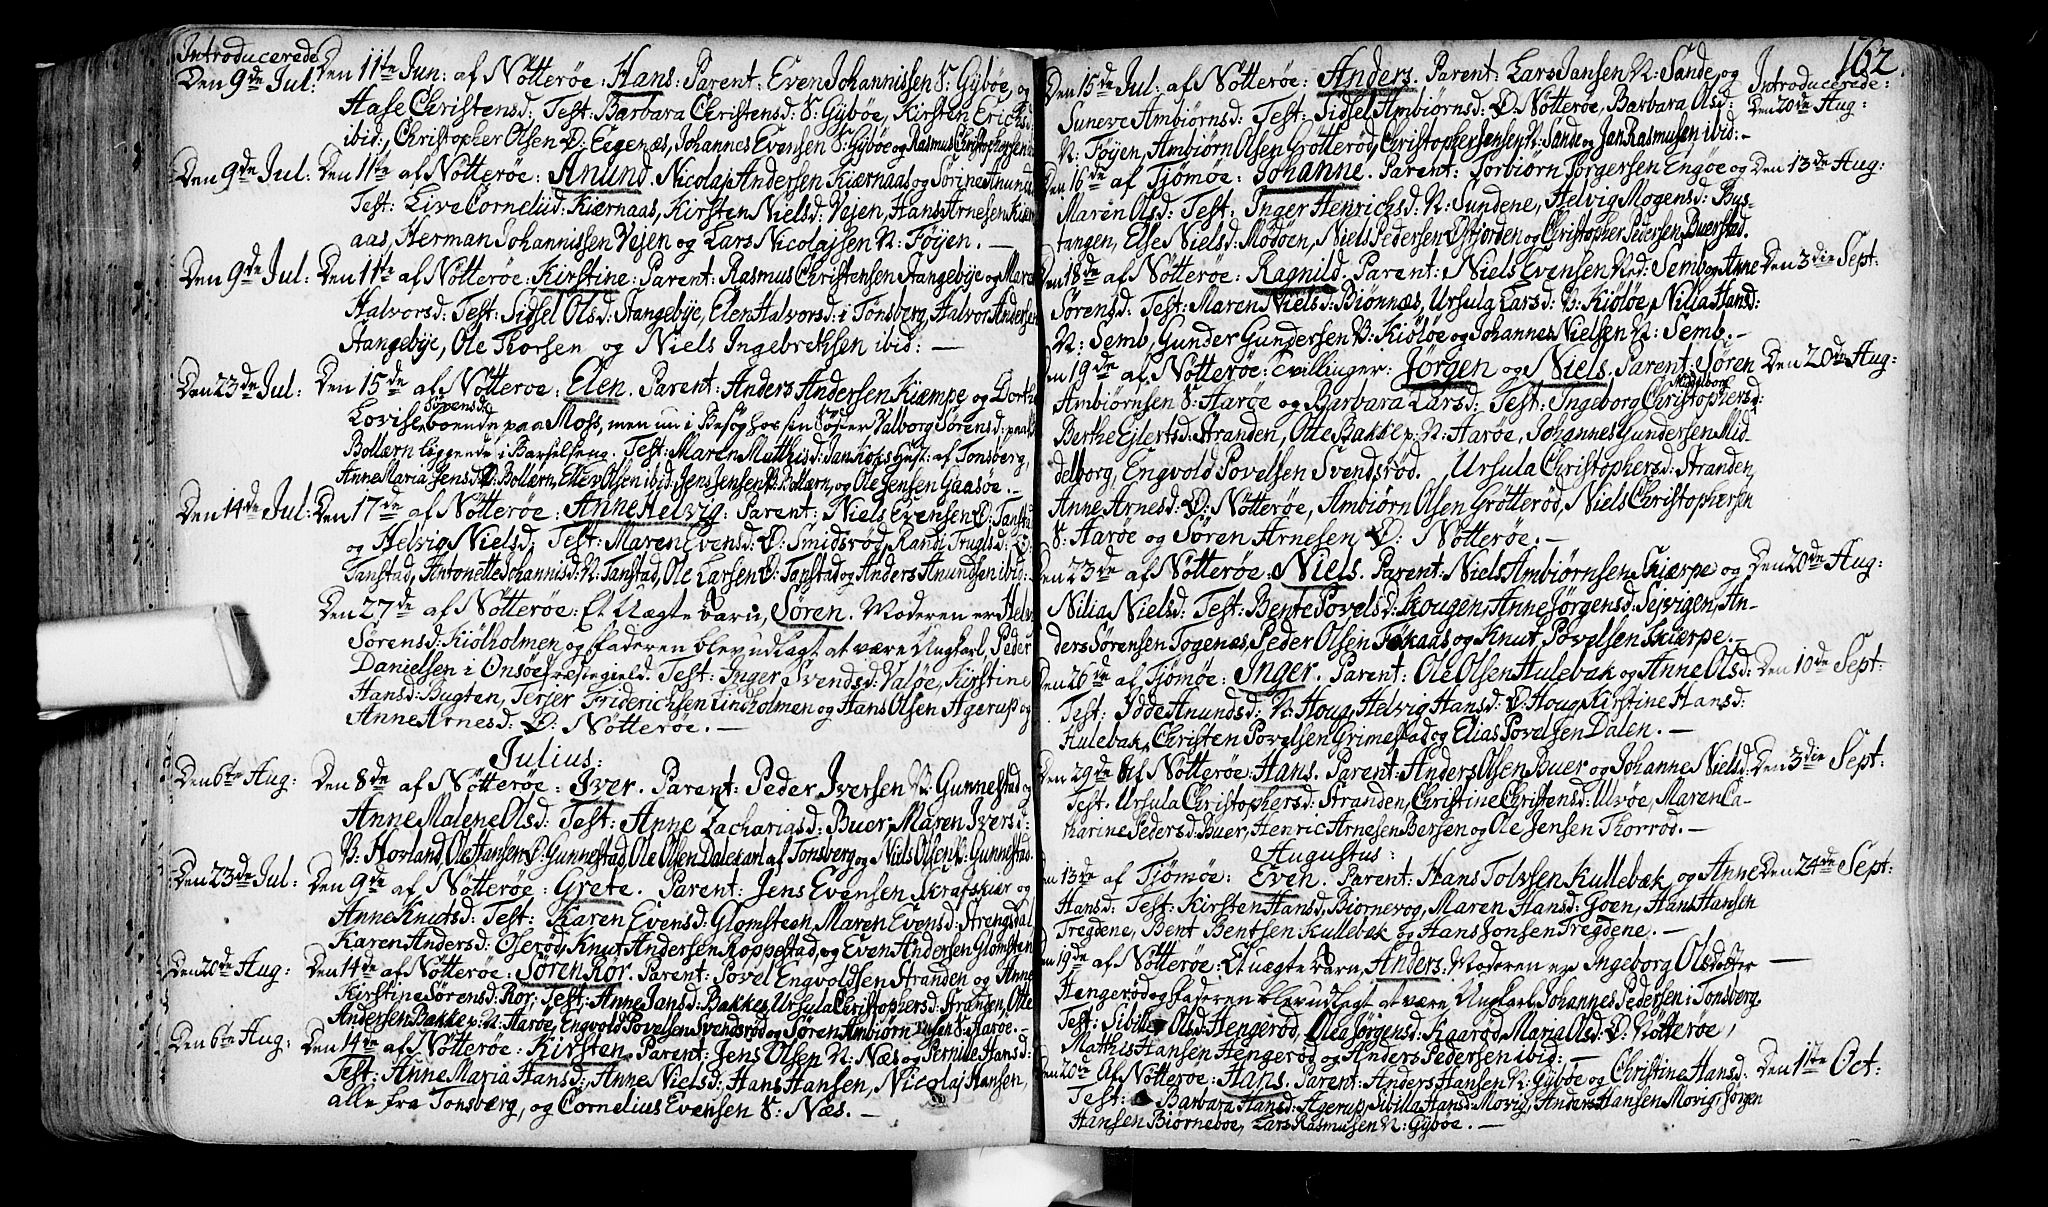 Introducerede
Den 9de Jul: Den 11te Jun: af Nötterøe: Hans: Parent: Even Johannissen S: Gybøe, og
Hase Christensd: Test: Barbara Christensd: S: Gybøe, Kirsten Erichsd:
ibid, Christopher Olsen Ø: Eegenæs, Johannes Evensen S: Gybøe og Rasmus Christophersen
Den 9de Jul: Den 11te af Nötterøe: Anund. Nicolaj Andersen Kiærnaas og Sørine Anunds
Test: Live Cornelid: Kiærnaas, Kirsten Nielsd: Vejen, Hans Arnesen Kiærn
aas, Herman Johannissen Vejen og Lars Nicolajsen N: Føyen. —
Den 9de Jul: Den 11te af Nötterøe: Kirstine: Parent: Rasmus Christensen Stangebye og Maren
Halvorsd: Test: Sidsel Olsd: Stangebye, Elen Halvorsd: i Tønsberg, Halvor Andersen
Stangebye, Ole Thorsen og Niels Ingebrektsen ibid: —
Den 23de Jul: Den 15de af Nötterøe: Elen. Parent: Anders Andersen Kiæmpe og Dorthe
Lovise Sørensd: boende paa Moss, men nu i Besøg hos sin Søster Valborg Sørensd: paa
Bollærn liggende i Barselseng. Test: Maren Matthisd: Jan Koks Hust: af Tonsberg,
Anne Maria Jensd: Ø: Bollærn, Ellev Olsen ibid: Jens Jensen V: Bollærn, og Ole Jensen Gaasøe. —
Den 14de Jul: Den 17de af Nötterøe: Anne Helvig: Parent: Niels Evensen Ø: Tanstad
og Helvig Nielsd: Test: Maren Evensd: Ø: Smidsrød, Randi Trulsd: Ø:
Tanstad, Antonette Johannisd: N: Tanstad, Ole Larsen Ø: Tanstad og Anders Anundsen ibid: —
Den 27de af Nötterøe: Et Uægte barn, Søren. Moderen er Helvig
Sørensd: Kiølholmen og Faderen blev udlagt at være Ungkarl, Peder
Danielsen i Onsøe Præstegield. Test: Inger Svendsd: Valøe, Kirstine
Hansd: Bugten, Terjer Friderichsen Lindholmen og Hans Olsen Agerup og
Anne Arnesd: Ø: Nötterøe. —
Julius:
Den 6te Aug: Den 8de af Nötterøe: Iver. Parent: Peder Iversen V: Gunnestad og
Anne Malene Olsd: Test: Anne Zachariasd: Buer, Maren Iversd:
V: Hovland, Ole Hansen Ø: Gunnestad, Ole Olsen Dalekarl af Tonsberg og Niels Olsen V: Gunnestad
Den 23de Jul: Den 9de af Nötterøe: Grete. Parent: Jens Evensen Skrafskiær og
Anne Knutsd: Test: Karen Evensd: Glomsteen, Maren Evensd: Strengsdal
Karen Andersd: Oserød, Knut Andersen Koppestad, og Even Andersen Glomsteen
Den 20de Aug: Den 14de af Nötterøe: Søren Ror. Parent: Povel Engvoldsen Stranden og Anne
Kirstine Sørensd: Ror: Test: Anne Jansd: Bakke, Ursula Christophersd: Stranden, Otte
Andersen Bakke p: N: Harøe, Engvold Povelsen Svendsrød og Søren Ambiørnsen S: Harøe. —
Den 6te Aug: Den 14de af Nötterøe: Kirsten. Parent: Jens Olsen N: Næs og Pernille Hansd:
Test: Anne Maria Hansd: Anne Nielsd: Hans Hansen, Nicolaj Hansen,
alle fra Tonsberg, og Cornelius Evensen S: Næs. —
162.
Den 15de Jul: af Nötterøe: Anders. Parent: Lars Jansen N: Sande, og Introducerede:
Suneve Ambiørnsd: Test: Sidsel Ambiørnsd: Ø: Nötterøe, Barbara Olsd: Den 20de Aug:
N: Føyen, Ambiørn Olsen Grøtterød, Christopher Jensen N: Sande og Jan Rasmusen ibid: —
Den 16de af Tjømøe: Johanne. Parent: Torbiørn Jørgersen Engøe og Den 13de Aug:
Maren Olsd: Test: Inger Henrichsd: N: Sundene, Helvig Mogensd: Bus-
tangen, Else Nielsd: Mødøen, Niels Pedersen Østjorden og Christopher Pedersen Buerstad.
Den 18de af Nötterøe: Ragnild. Parent: Niels Evensen Ned: Semb og Anne Den 3die Sept:
Sørensd: Test: Maren Nielsd: Biønnæs, Ursula Larsd: V: Kiøløe, Nilia Hansd:
N: Semb, Gunder Gundersen V: Kiøløe og Johannes Nielsen N: Semb. —
Den 19de af Nötterøe: Tvillinger: Jørgen og Niels. Parent: Søren Den 20de Aug:
Ambiørnsen S: Harøe og Barbara Larsd: Test: Ingeborg Christophersd: Middelborg
Berthe Ejlertsd: Stranden, Otte Bakke p: N: Harøe, Johannes Gundersen Mid-
delborg, Engvold Povelsen Svendsrød. Ursula Christophersd: Stranden,
Anne Arnesd: Ø: Nötterøe, Ambiørn Olsen Grøtterød, Niels Christophersen
S: Harøe og Søren Arnesen Ø: Nötterøe. —
Den 23de af Nötterøe: Niels. Parent: Niels Ambiørnsen Skierpe og Den 20de Aug:
Nilia Nielsd: Test: Bente Povelsd: Skougen, Anne Jørgensd: Sejvigen, An-
ders Sørensen Togenæs, Peder Olsen Fokaas og Knut Povelsen Skierpe. —
Den 26de af Tjømøe: Inger. Parent: Ole Olsen Hulebak og Anne Olsd: Den 10de Sept:
Test: Jødde Anundsd: N: Houg, Helvig Hansd: Ø: Houg, Kirstine Hansd:
Hulebak, Christen Povelsen Grimestad og Elias Povelsen Dalen. —
Den 29de af Nötterøe: Hans. Parent: Anders Olsen Buer og Johanne Nielsd: Den 3die Sept:
Test: Ursula Christophersd: Stranden, Christine Christensd: Ulvøe, Maren Ca-
tharine Pedersd: Buer, Henric Arnesen Bersen og Ole Jensen Thorrød. —
Augustus:
Den 13de af Tjømøe: Even. Parent: Hans Tolvsen Kullebæk og Anne Den 24de Sept:
Hansd: Test: Kirsten Hansd: Biornevog, Maren Hansd: Goen, Hans Hansen
Tregdene, Bent Bentsen Kullebæk og Hans Jonsen Tregdene. —
Den 19de af Nötterøe: Et uægte barn, Anders. Moderen er Ingeborg Olsdatter —
Hengerød og Faderen blev udlagt at være Ungkarl Johannes Pedersen i Tonsberg.
Test: Sibille Olsd: Hengerød, Olea Jørgensd: Kaarød, Maria Olsd: Ø: Nötterøe,
Mathis Hansen Hengerød og Anders Pedersen ibid: —
Den 20de Af Nötterøe: Hans. Parent: Anders Hansen N: Gybøe og Christine Hansd: Den 1ste Oct:
Test: Barbara Hansd: Agerup, Sibilla Hansd: Morig, Anders Hansen Morig, Jørgen
Hansen Biørneboe, Lars Rasmusen N: Gybøe. —